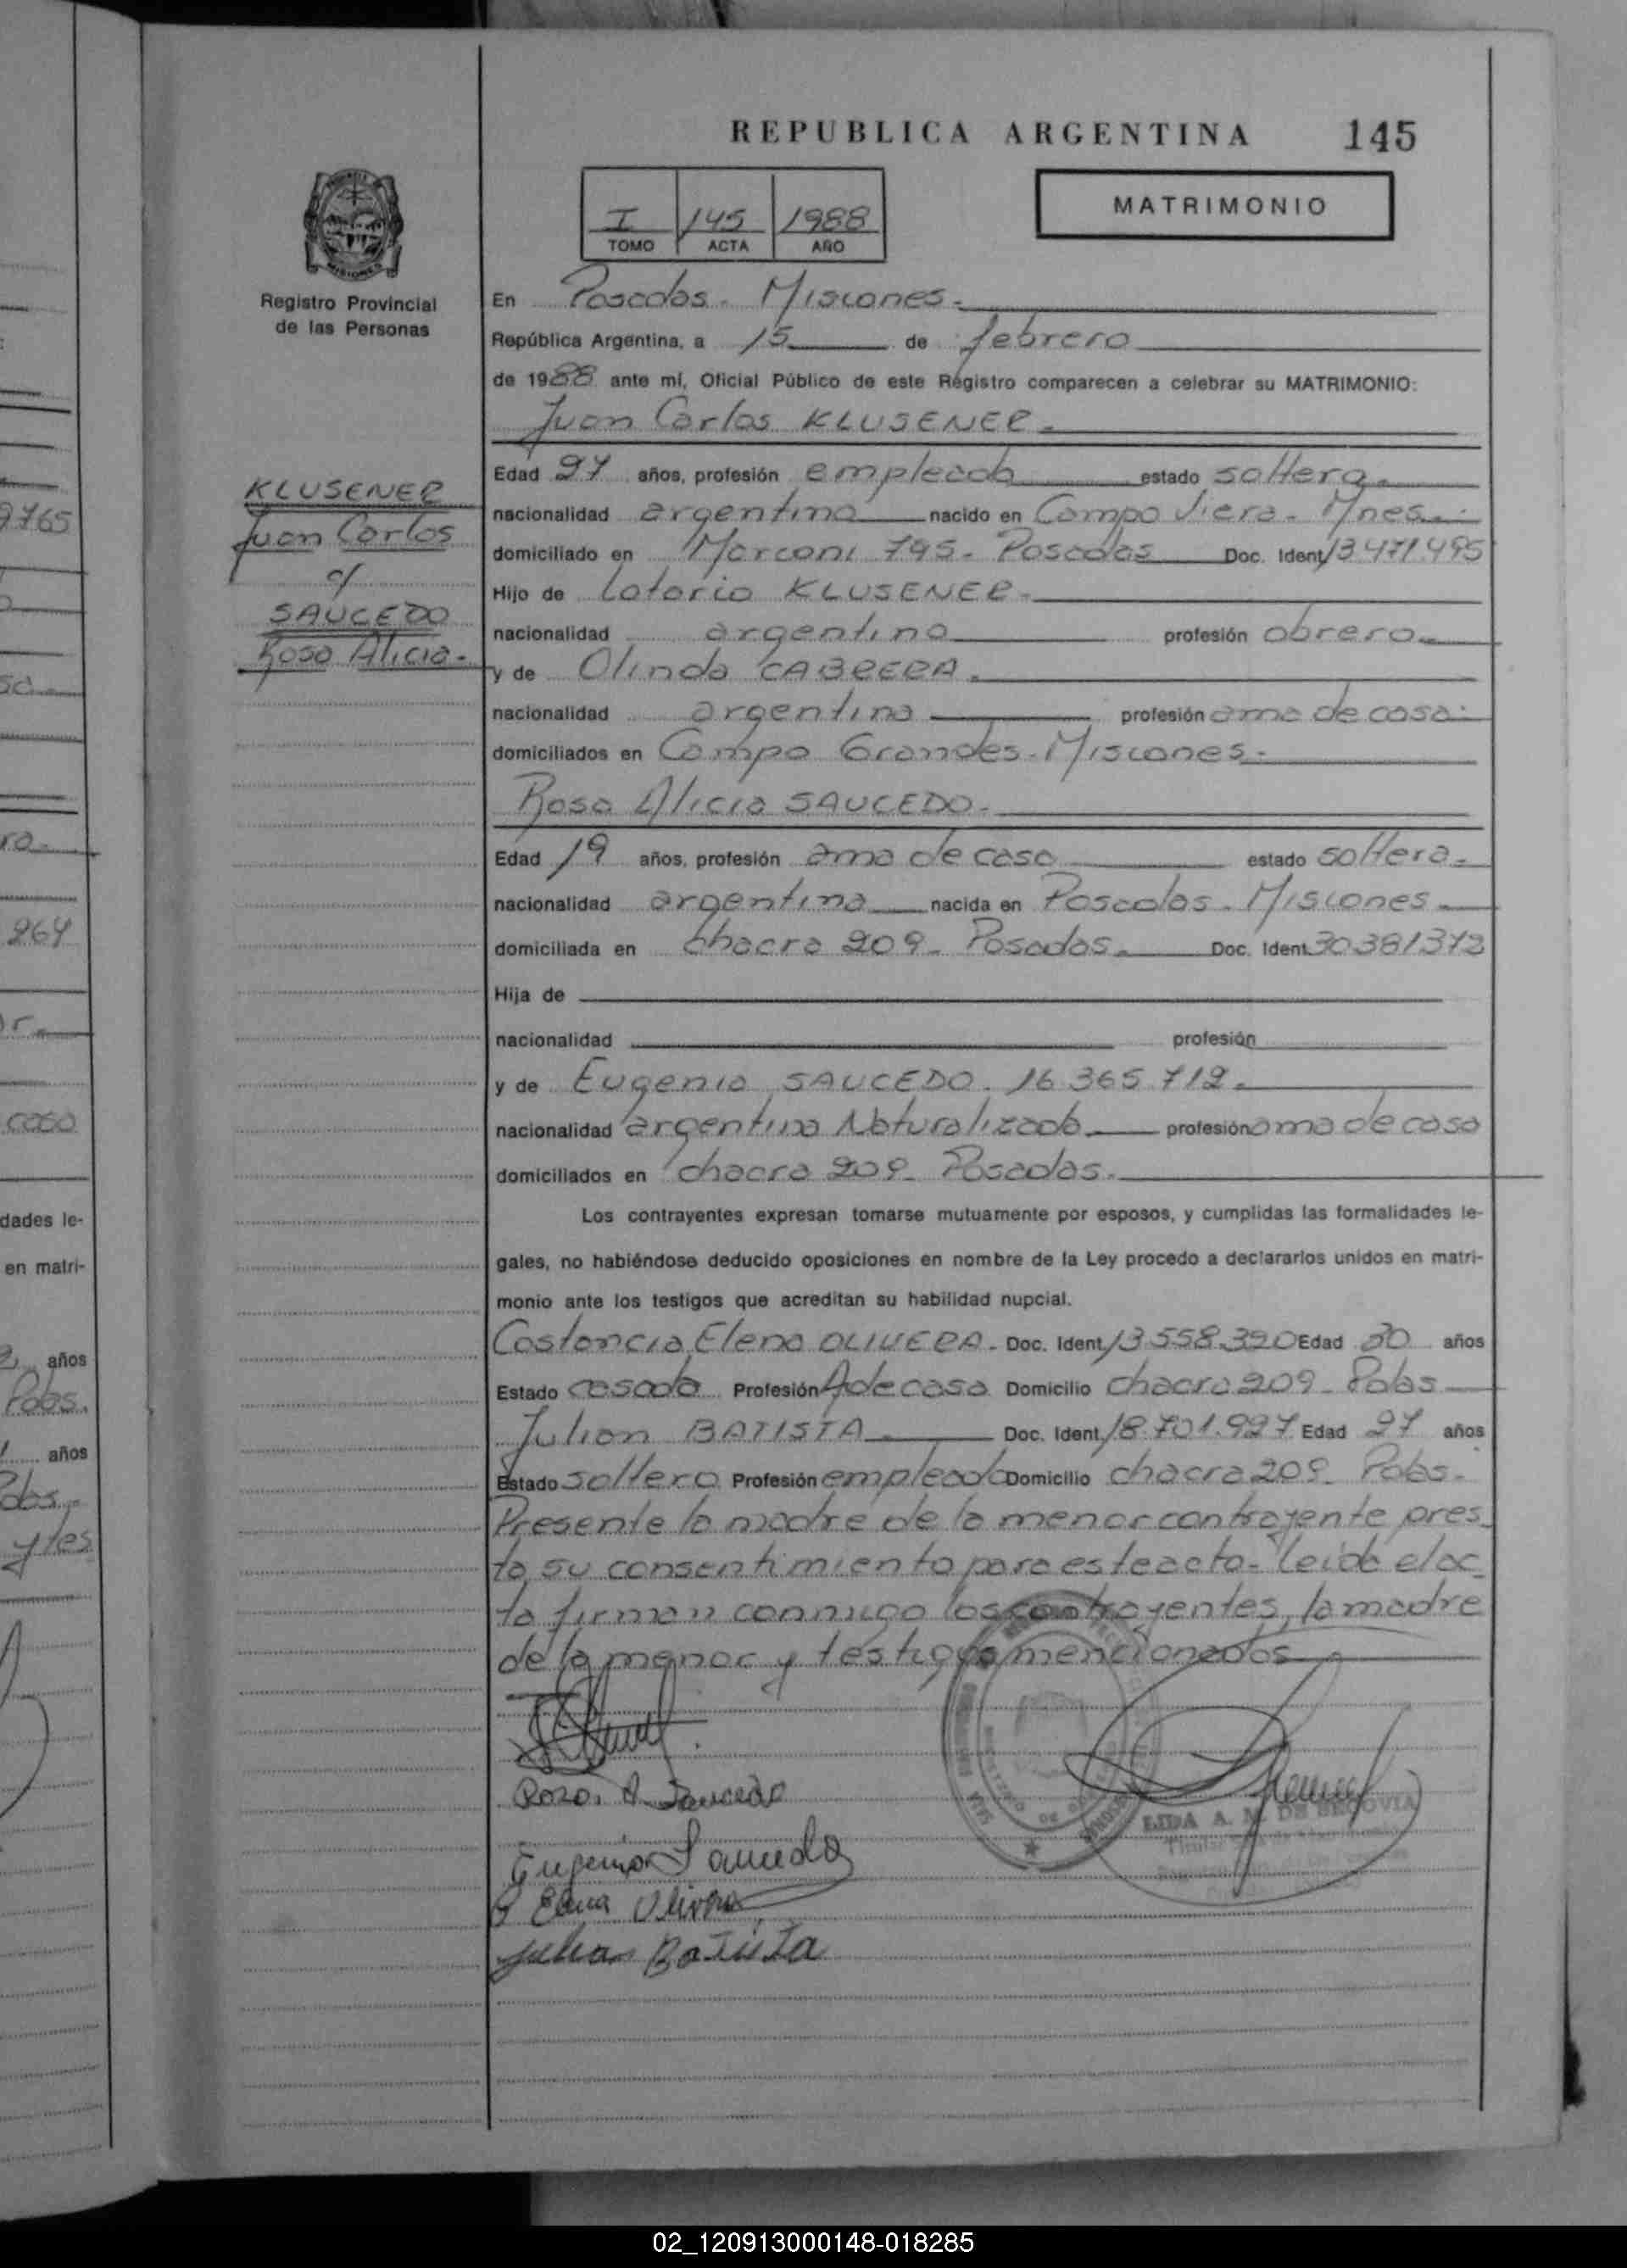 REPUBLICA ARGENTINA 145
MATRIMONIO
I 145 1988
TOMO ACTA AÑO
Registro Provincial
de las Personas
KLUSENER
Juan Carlos
c/
SAUCEDO
Rosa Alicia.-
En Posadas - Misiones.-
República Argentina, a 15 de febrero
de 1988 ante mí, Oficial Público de este Registro comparecen a celebrar su MATRIMONIO:
Juan Carlos KLUSENER.-
Edad 27 años, profesión empleado estado soltero.-
nacionalidad argentino nacido en Campo Viera - Mnes.-
domiciliado en Marconi 795 - Posadas Doc. Ident. 13.471.495
Hijo de Lotario KLUSENER.-
nacionalidad argentino profesión obrero.-
y de Olinda CABRERA.
nacionalidad argentina profesión ama de casa.-
domiciliados en Campo Grandes - Misiones.-
Rosa Alicia SAUCEDO.-
Edad 19 años, profesión ama de casa estado soltera.-
nacionalidad argentina nacida en Posadas - Misiones.-
domiciliada en chacra 209 - Posadas.- Doc. Ident. 30381372
Hija de
nacionalidad profesión
y de Eugenia SAUCEDO. 16.365.712.-
nacionalidad argentina Naturalizada profesión ama de casa
domiciliados en chacra 209 - Posadas.-
Los contrayentes expresan tomarse mutuamente por esposos, y cumplidas las formalidades le-
gales, no habiéndose deducido oposiciones en nombre de la Ley procedo a declararlos unidos en matri-
monio ante los testigos que acreditan su habilidad nupcial.
Costancia Elena OLIVERA.- Doc. Ident. 13.558.390 Edad 30 años
Estado casada Profesión A de casa Domicilio chacra 209 - Pdas
Julian BATISTA.- Doc. Ident. 18.701.927 Edad 27 años
Estado soltero Profesión empleado Domicilio chacra 209 - Pdas.-
Presente la madre de la menor contrayente pres-
ta su consentimiento para este acto - leida el ac-
ta firman conmigo los contrayentes, la madre
de la menor y testigos mencionados
Rosa A Saucedo
Eugenia Saucedo
C Elena Olivera
Julian Batista
LIDA A. M. DE SEGOVIA
9765
264
casa
dades le-
en matri-
años
Pdas.
años
Pdas.-
y tes
02_120913000148-018285